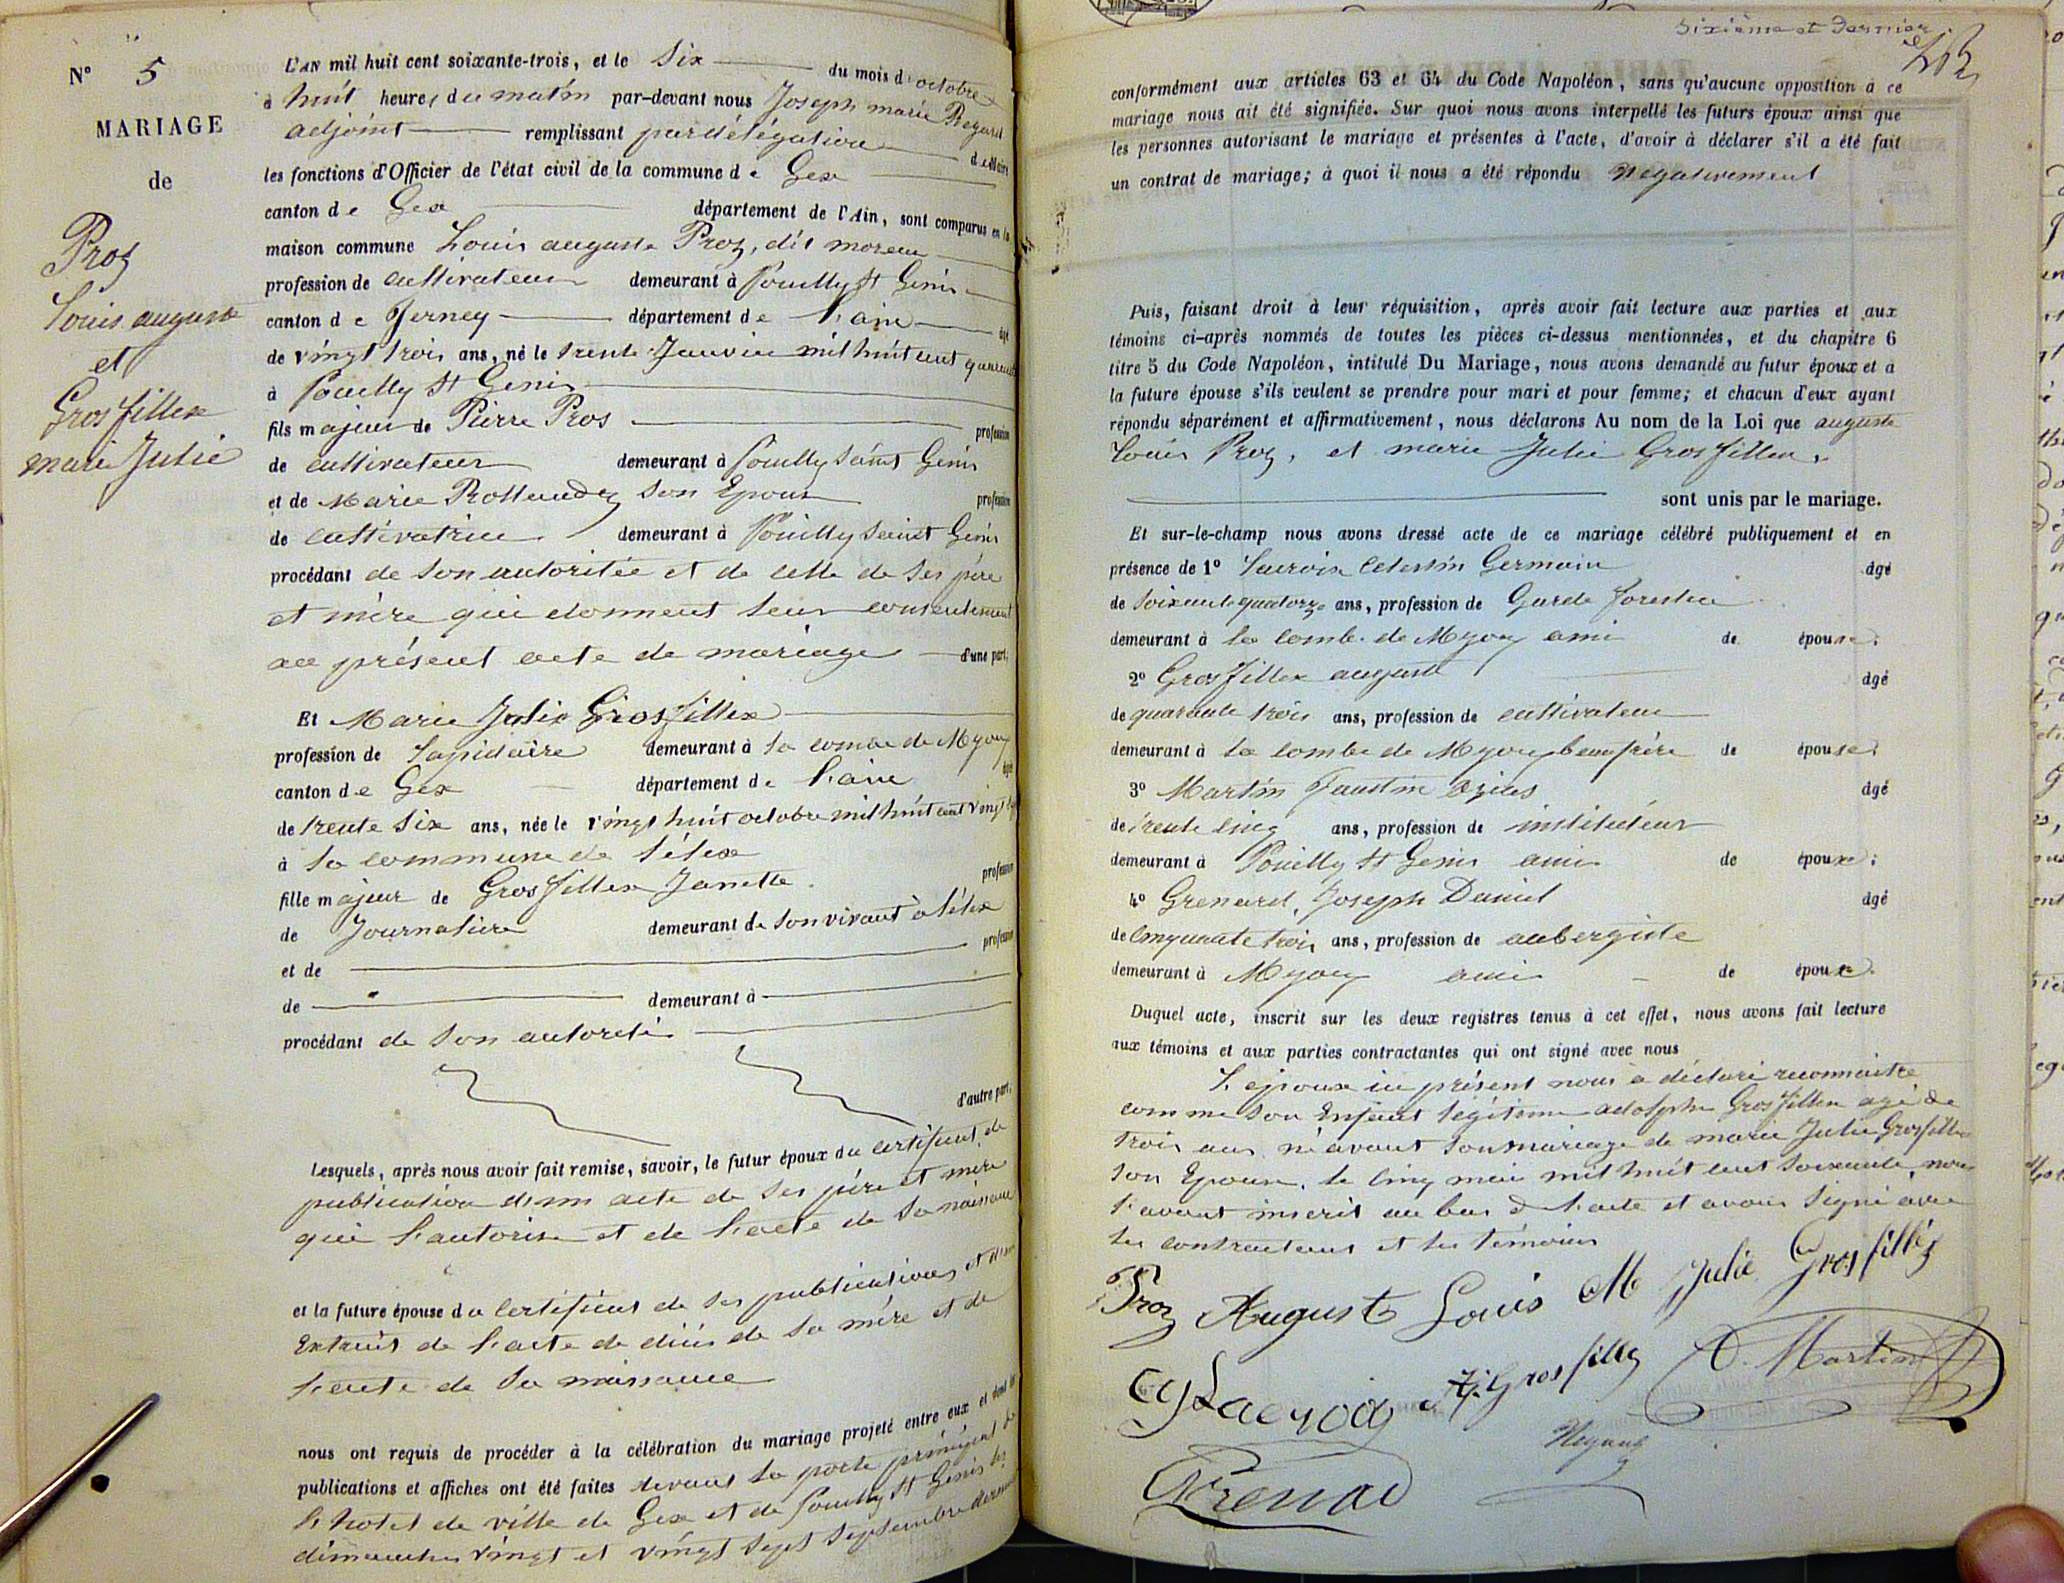 N° 5
MARIAGE
de
Proz
Louis auguste
et
Gros fillex
marie Julie
L'AN mil huit cent soixante-trois, et le Six du mois d'octobre
à huit heures du matin par-devant nous Joseph marie Regard
adjoint remplissant par délégation
les fonctions d'Officier de l'état civil de la commune de Gex
canton de Gex département de l'Ain, sont comparus en la
maison commune Louis auguste Proz, dit moreau
profession de cultivateur demeurant à Pouilly St Genis
canton de Ferney département de l'ain âgé
de vingt trois ans, né le trente Janvier mil huit cent quarante
à Pouilly St Genis
fils majeur de Pierre Pros profession
de cultivateur demeurant à Pouilly saint Genis
et de Marie son Epouse profession
de cultivatrice demeurant à Pouilly saint Genis
procédant de son autoritée et de celle de ses père
et mère qui donnent leur consentement
au présent acte de mariage d'une part;
Et Marie Julie Gros fillex
profession de Lapidaire demeurant à la combe de Myoux
canton de Gex département de l'ain âgée
de trente six ans, née le vingt huit octobre mil huit cent vingt
à la commune de Lélex
fille majeur de Gros fillex Janette profession
de Journalière demeurant de son vivant à Lélex
et de profession
de demeurant à
procédant de son autorité
d'autre part;
Lesquels, après nous avoir fait remise, savoir, le futur époux du certificat de
publication d'un acte de ses père et mère
qui l'autorise et de l'acte de sa naissance
et la future épouse du certificat de ses publications et d'un
Extrait de l'acte de décès de sa mère et de
l'acte de sa naissance
nous ont requis de procéder à la célébration du mariage projeté entre eux et dont les
publications et affiches ont été faites devant la porte principal de
l'hotel de ville de Gex et de Pouilly St Genis les
dimanches vingt et vingt sept septembre dernier
Sixième et dernier
conformément aux articles 63 et 64 du Code Napoléon, sans qu'aucune opposition à ce
mariage nous ait été signifiée. Sur quoi nous avons interpellé les futurs époux ainsi que
les personnes autorisant le mariage et présentes à l'acte, d'avoir à déclarer s'il a été fait
un contrat de mariage; à quoi il nous a été répondu Négativement
Puis, faisant droit à leur réquisition, après avoir fait lecture aux parties et aux
témoins ci-après nommés de toutes les pièces ci-dessus mentionnées, et du chapitre 6
titre 5 du Code Napoléon, intitulé Du Mariage, nous avons demandé au futur époux et à
la future épouse s'ils veulent se prendre pour mari et pour femme; et chacun d'eux ayant
répondu séparément et affirmativement, nous déclarons Au nom de la Loi que auguste
Louis Proz, et marie Julie Gros fillex.
sont unis par le mariage.
Et sur-le-champ nous avons dressé acte de ce mariage célébré publiquement et en
présence de 1° Lacroix Celestin Germain âgé
de soixante quatorze ans, profession de Garde forestier
demeurant à la combe de Myoux ami de épouse;
2° Gros fillex auguste âgé
de quarante trois ans, profession de cultivateur
demeurant à la combe de Myoux beau frère de épouse;
3° Martin Faustin âgé
de trente cinq ans, profession de instituteur
demeurant à Pouilly St Genis ami de époux;
4° Grenard, Joseph Daniel âgé
de cinquante trois ans, profession de aubergiste
demeurant à Myoux ami de époux.
Duquel acte, inscrit sur les deux registres tenus à cet effet, nous avons fait lecture
aux témoins et aux parties contractantes qui ont signé avec nous
L'epoux ici présent nous a déclaré reconnaitre
comme son Enfant légitime adolphe Gros fillex agé de
trois ans né avant son mariage de marie Julie Gros fillex
son Epouse, le cinq mai mil huit cent soixante, nous
l'avons inscrit au bas de l'acte et avons signé avec
les contractans et les témoins
Proz Auguste Louis M Julie Gros filléx
Lacroix Gros filléx Martin
Grenard
Regard